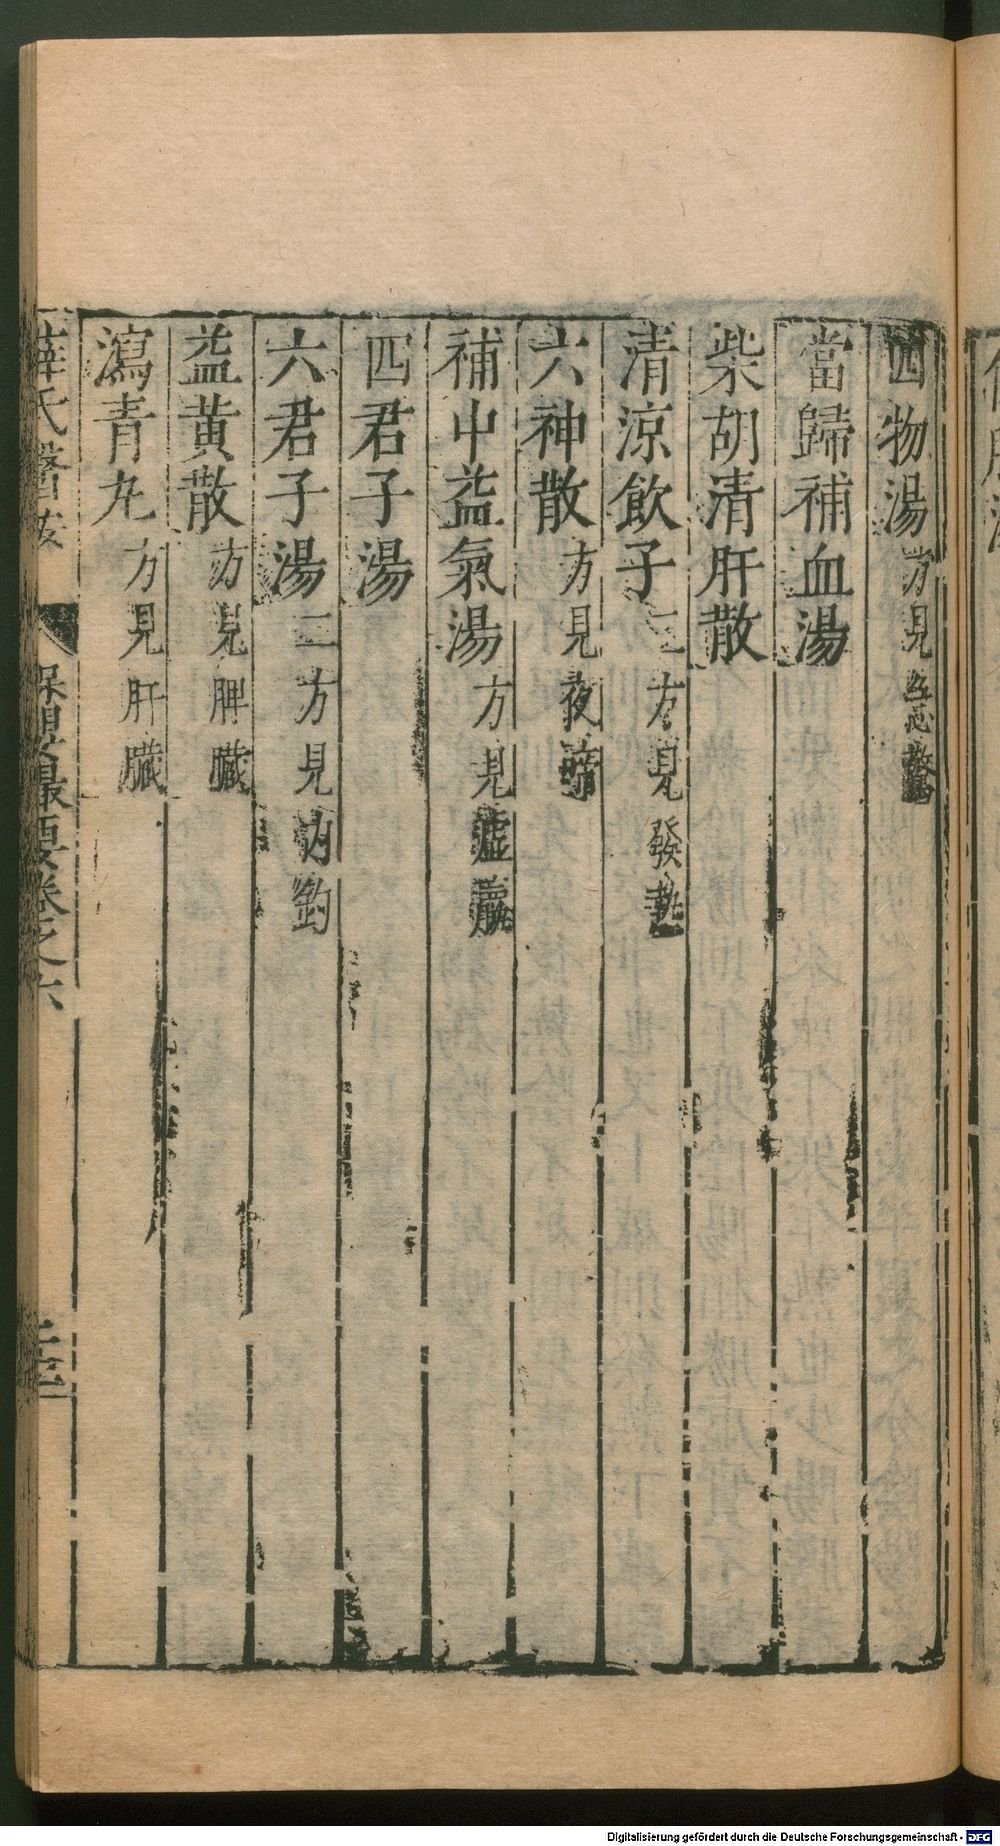 四物湯方見急驚
當歸補血湯
柴胡清肝散
清涼飲子二方見發熱
六神散方見夜啼
補中益氣湯方見虛羸
四君子湯
六君子湯二方見內釣
益黃散方見脾臟
瀉青丸方見肝臟
薛氏醫按 保嬰撮要卷之六
Digitalisierung gefördert durch die Deutsche Forschungsgemeinschaft - DFG